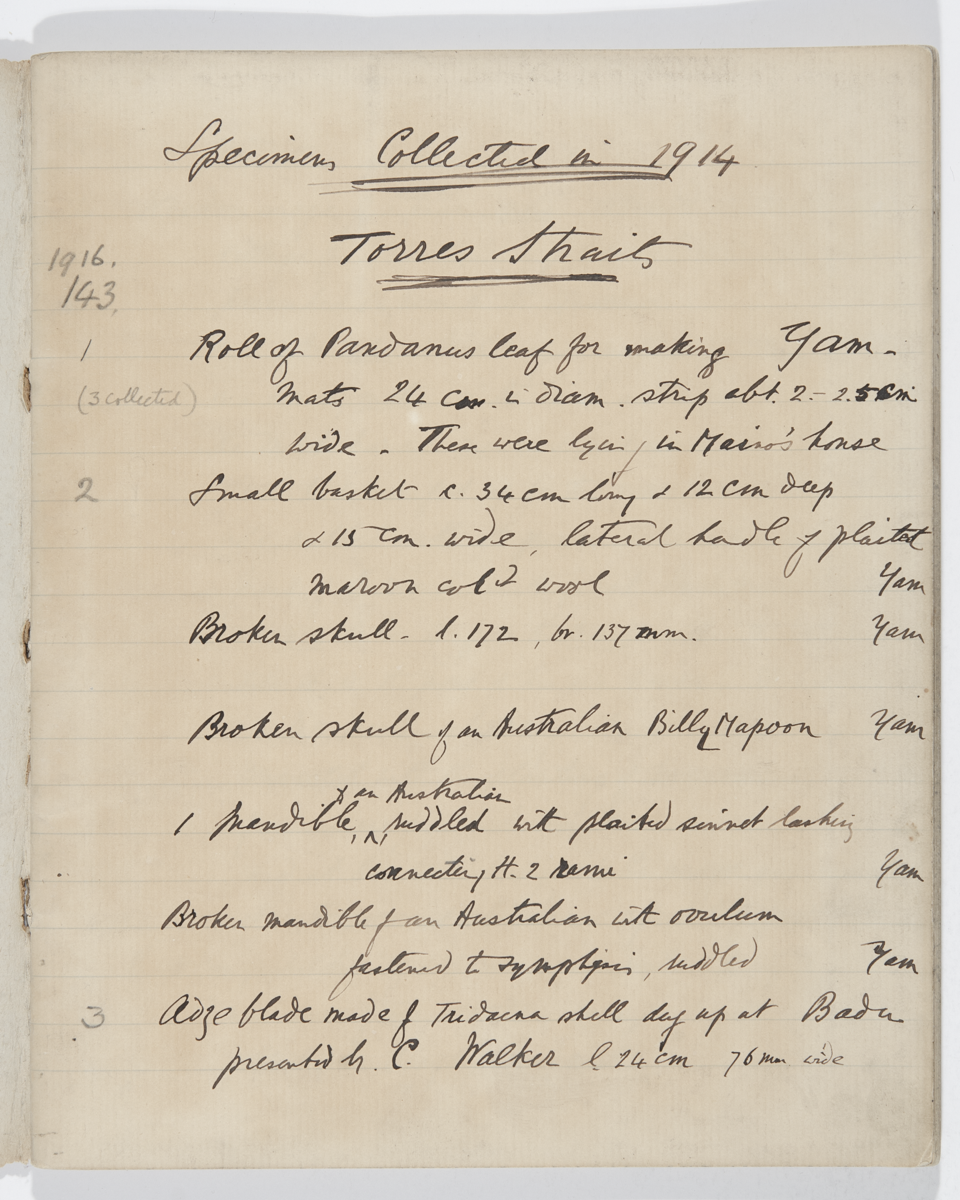 Specimens Collected in 1914
Torres Straits
1916.
143.
1 Roll of Pandanus leaf for making Yam -
(3 collected) mats 24 cm. in diam. strip abt. 2 - 2.5 cm
wide. These were lying in Maino's house
2 Small basket c. 34 cm long & 12 cm deep
& 15 cm. wide, lateral handle of plaited
maroon col^d wool Yam
Broken skull - l. 172, br. 137 mm. Yam
Broken skull of an Australian Billy Mapoon Yam
of an Australian
1 Mandible, ^, ruddled with plaited sinnet lashing
connecting the 2 rami Yam
Broken mandible of an Australian with ovulum
fastened to symphysis, ruddled Yam
3 Adze blade made of Tridacna shell dug up at Badu
presented by C. Walker l. 24 cm 76 mm wide